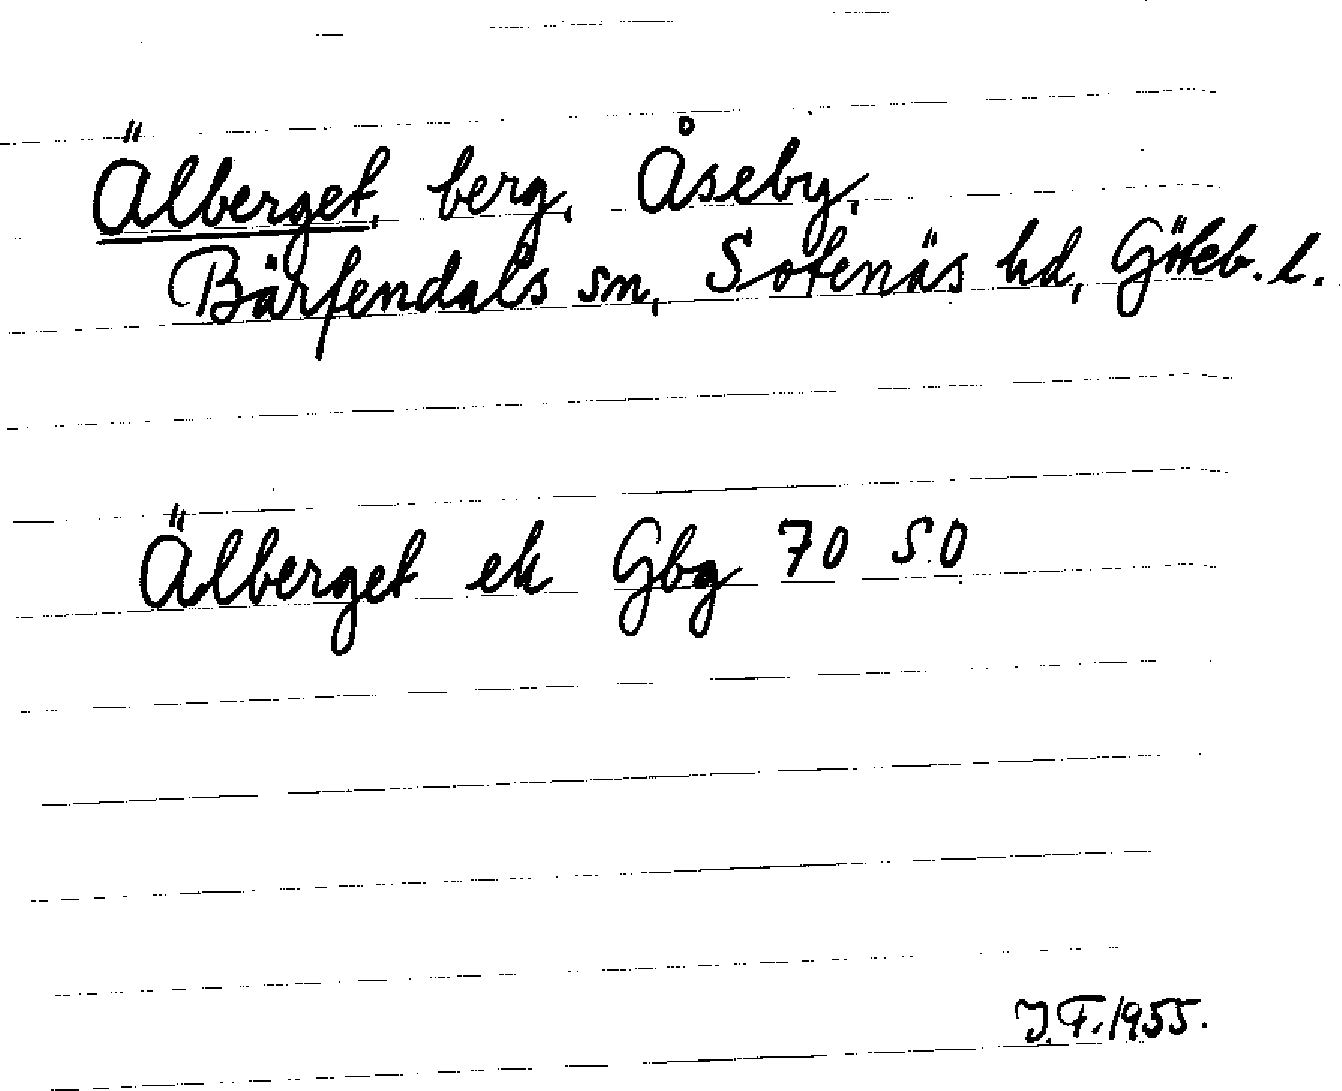 Älberget, berg, Åseby,
Bärfendals sn, Sotenäs hd, Göteb. l.
Älberget ek Gbg 70 SO
J.F. 1955.